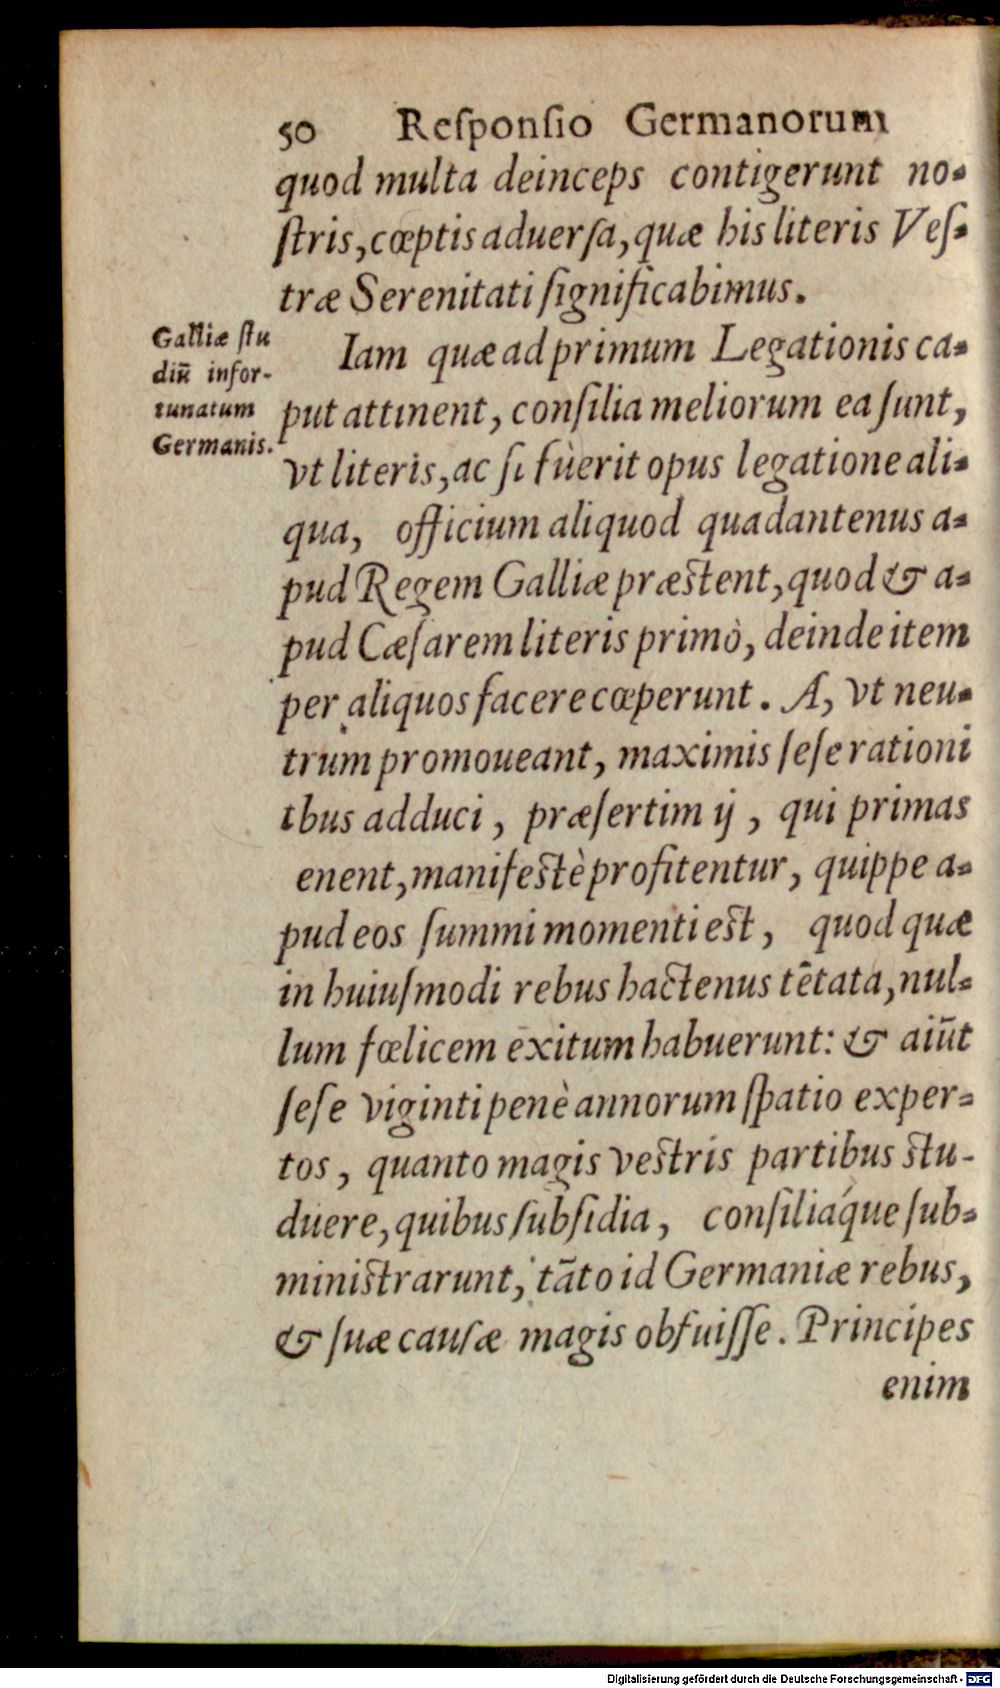 50 Reſponſio Germanorum
quod multa deinceps contigerunt no-
ſtris, cœptis aduerſa, quæ his literis Veſ-
træ Serenitati ſignificabimus.
Galliæ ſtu
diū infor-
tunatum
Germanis.
Iam quæ ad primum Legationis ca-
put attinent, conſilia meliorum ea ſunt,
vt literis, ac ſi fuerit opus legatione ali-
qua, officium aliquod quadantenus a-
pud Regem Galliæ præſtent, quod & a-
pud Cæſarem literis primò, deinde item
per aliquos facere cœperunt. A, vt neu-
trum promoueant, maximis ſeſe rationi
ibus adduci, præſertim ij, qui primas
enent, manifeſtè profitentur, quippe a-
pud eos ſummi momenti eſt, quod quæ
in huiuſmodi rebus hactenus tētata, nul-
lum fœlicem exitum habuerunt: & aiūt
ſeſe viginti penè annorum ſpatio exper-
tos, quanto magis veſtris partibus ſtu-
duere, quibus ſubſidia, conſiliáque ſub-
miniſtrarunt, tāto id Germaniæ rebus,
& ſuæ cauſæ magis obfuiſſe. Principes
enim
Digitalisierung gefördert durch die Deutsche Forschungsgemeinschaft - DFG